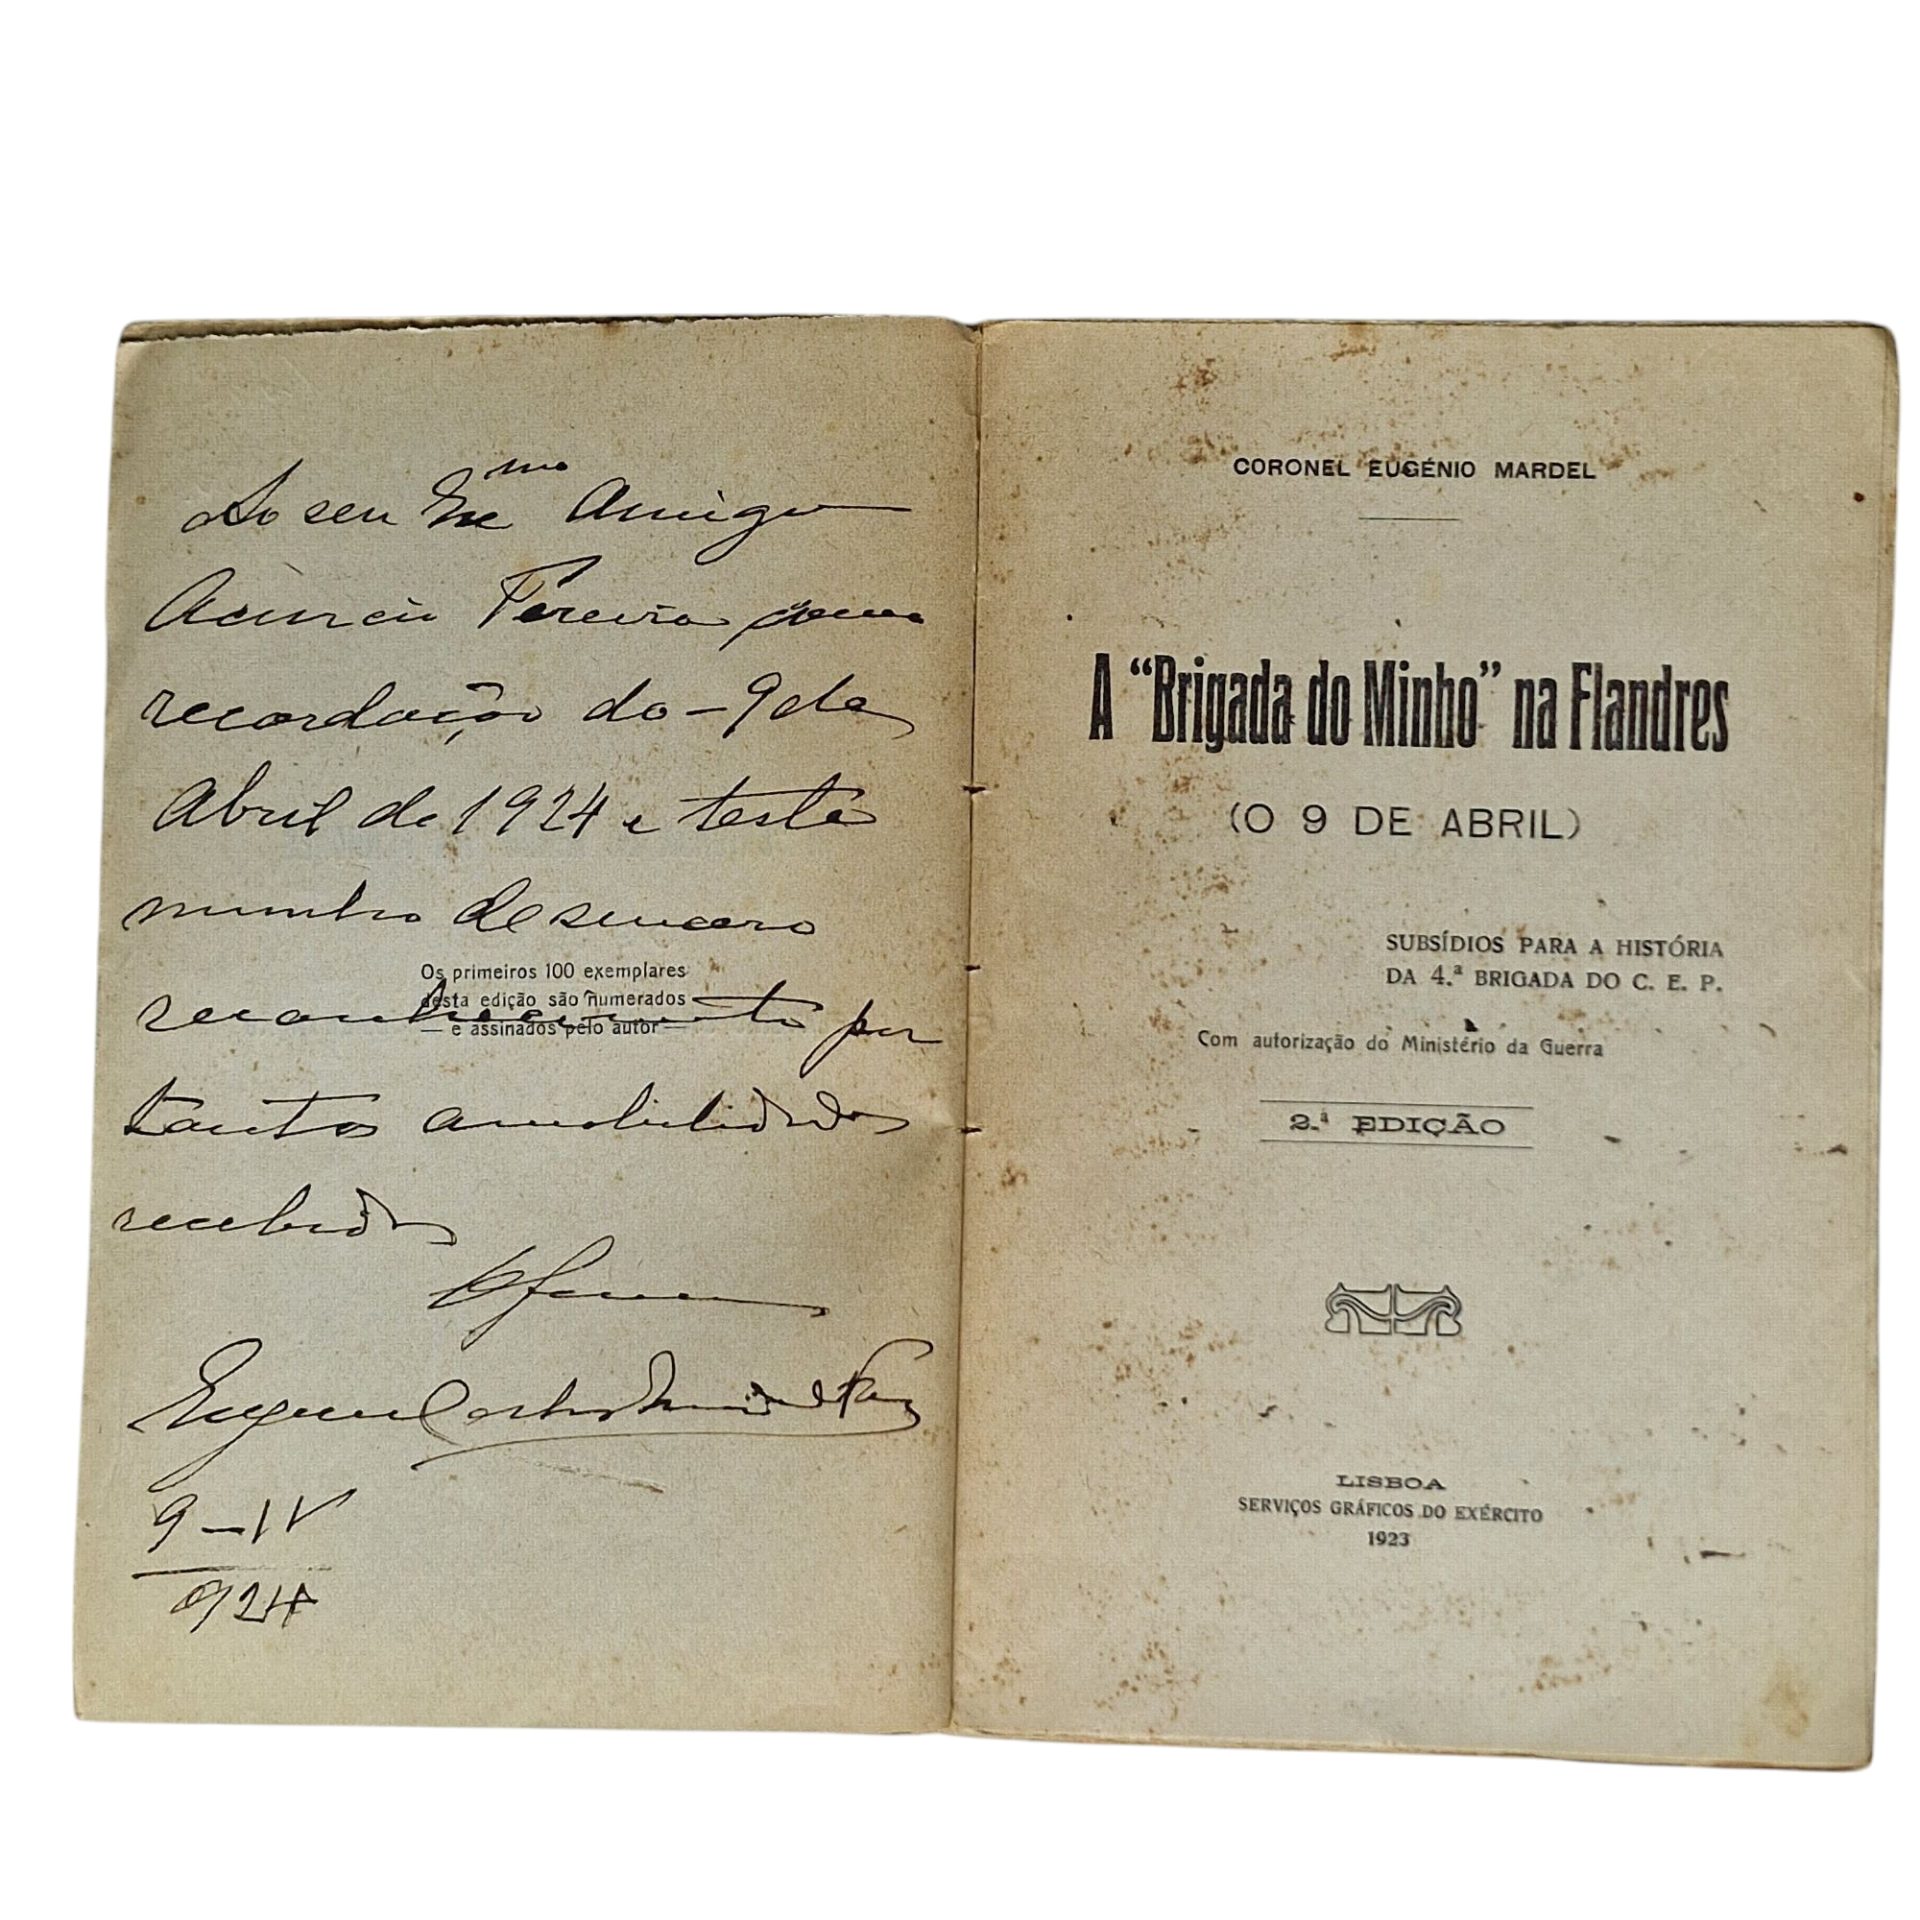 Ao seu Exmo Amigo
Pereira como
recordação do - 9 de
Abril de 1924 e teste
munho de sincero
reconhecimento por
tantas amabilidades
recebidas
Of.
Eugenio Carlos Mardel
9-IV
924
Os primeiros 100 exemplares
desta edição são numerados
— e assinados pelo autor —
CORONEL EUGÉNIO MARDEL
A “Brigada do Minho” na Flandres
(O 9 DE ABRIL)
SUBSÍDIOS PARA A HISTÓRIA
DA 4.ª BRIGADA DO C. E. P.
Com autorização do Ministério da Guerra
2.ª EDIÇÃO
LISBOA
SERVIÇOS GRÁFICOS DO EXÉRCITO
1923